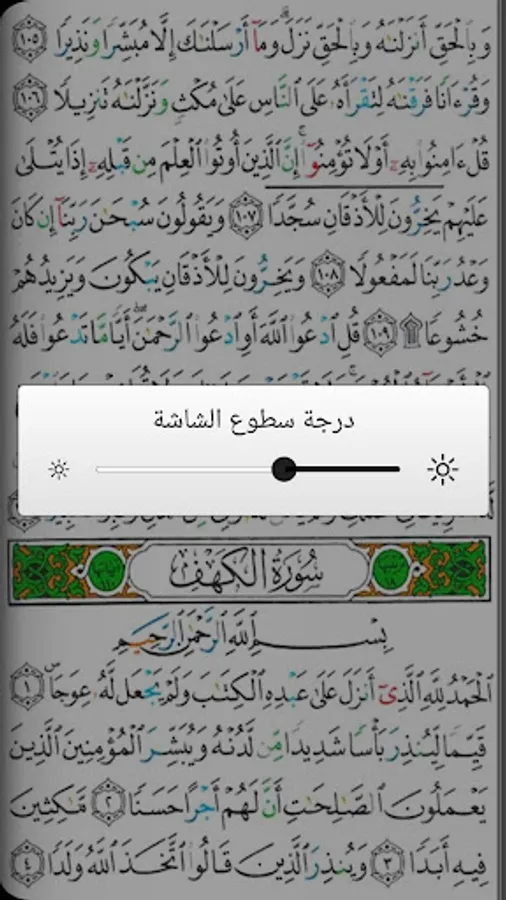 وَبِٱلْحَقِّ أَنزَلْنَٰهُ وَبِٱلْحَقِّ نَزَلَۗ وَمَآ أَرْسَلْنَٰكَ إِلَّا مُبَشِّرًا وَنَذِيرًا ١٠٥
وَقُرْءَانًا فَرَقْنَٰهُ لِتَقْرَأَهُۥ عَلَى ٱلنَّاسِ عَلَىٰ مُكْثٍ وَنَزَّلْنَٰهُ تَنزِيلًا ١٠٦
قُلْ ءَامِنُوا۟ بِهِۦٓ أَوْ لَا تُؤْمِنُوٓا۟ۚ إِنَّ ٱلَّذِينَ أُوتُوا۟ ٱلْعِلْمَ مِن قَبْلِهِۦٓ إِذَا يُتْلَىٰ
عَلَيْهِمْ يَخِرُّونَ لِلْأَذْقَانِ سُجَّدًا ١٠٧ وَيَقُولُونَ سُبْحَٰنَ رَبِّنَآ إِن كَانَ
وَعْدُ رَبِّنَا لَمَفْعُولًا ١٠٨ وَيَخِرُّونَ لِلْأَذْقَانِ يَبْكُونَ وَيَزِيدُهُمْ
خُشُوعًا ۩ ١٠٩ قُلِ ٱدْعُوا۟ ٱللَّهَ أَوِ ٱدْعُوا۟ ٱلرَّحْمَٰنَۖ أَيًّا مَّا تَدْعُوا۟ فَلَهُ
درجة سطوع الشاشة
سُورَةُ الكَهْفِ
بِسْمِ ٱللَّهِ ٱلرَّحْمَٰنِ ٱلرَّحِيمِ
ٱلْحَمْدُ لِلَّهِ ٱلَّذِىٓ أَنزَلَ عَلَىٰ عَبْدِهِ ٱلْكِتَٰبَ وَلَمْ يَجْعَل لَّهُۥ عِوَجَاۜ ١
قَيِّمًا لِّيُنذِرَ بَأْسًا شَدِيدًا مِّن لَّدُنْهُ وَيُبَشِّرَ ٱلْمُؤْمِنِينَ ٱلَّذِينَ
يَعْمَلُونَ ٱلصَّٰلِحَٰتِ أَنَّ لَهُمْ أَجْرًا حَسَنًا ٢ مَّٰكِثِينَ
فِيهِ أَبَدًا ٣ وَيُنذِرَ ٱلَّذِينَ قَالُوا۟ ٱتَّخَذَ ٱللَّهُ وَلَدًا ٤